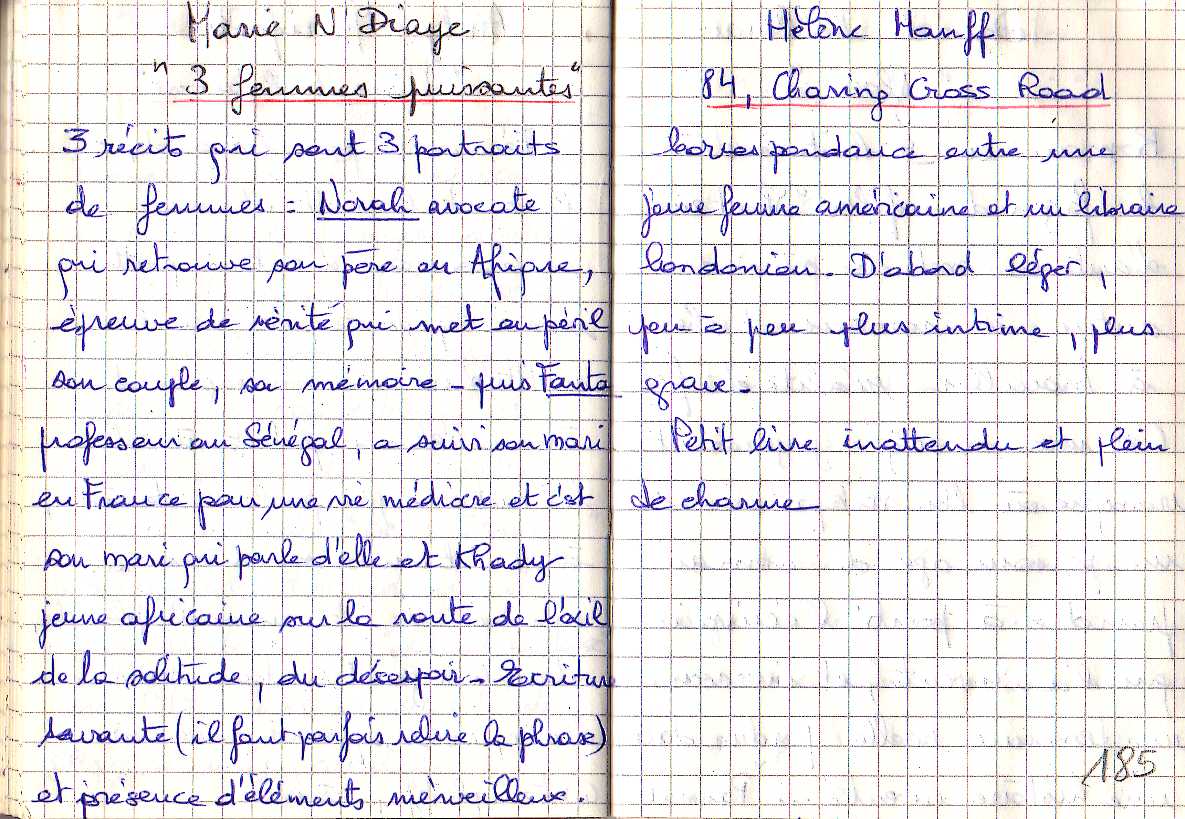 Marie N'Diaye
"3 femmes puissantes"
3 récits qui sont 3 portraits
de femmes = Norah avocate
qui retrouve son père en Afrique,
épreuve de vérité qui met en péril
son couple, sa mémoire - puis Fanta
professeur au Sénégal, a suivi son mari
en France pour une vie médiocre et c'est
son mari qui parle d'elle et Khady
jeune africaine sur la route de l'exil
de la solitude, du désespoir - Ecriture
savante (il faut parfois relire la phrase)
et présence d'éléments merveilleux.
Hélène Hanff
84, Charing Cross Road
Correspondance entre une
jeune femme américaine et un libraire
londonien. D'abord léger,
peu à peu plus intime, plus
grave.
Petit livre inattendu et plein
de charme
185